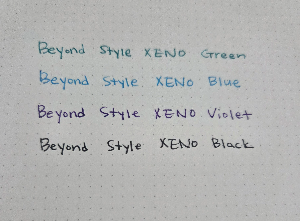 Beyond Style XENO Green
Beyond Style XENO Blue
Beyond Style XENO Violet
Beyond Style XENO Black